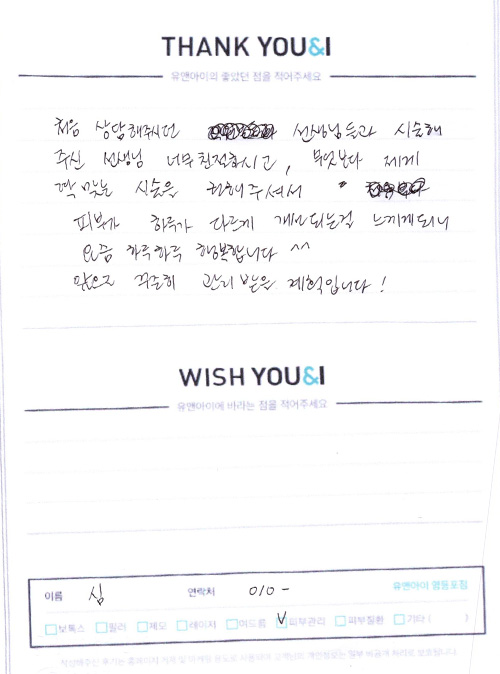 THANK YOU&I
유앤아이의 좋았던 점을 적어주세요
처음 상담해주시던 선생님들과 시술해
주신 선생님 너무 친절하시고, 무엇보다 제게
딱 맞는 시술을 권해주셔서
피부가 하루가 다르게 개선되는걸 느끼게되니
요즘 하루하루 행복합니다 ^^
앞으로 꾸준히 관리 받을 계획입니다!
WISH YOU&I
유앤아이에 바라는 점을 적어주세요
이름 심 연락처 010 - 유앤아이 영등포점
보톡스 필러 제모 레이저 여드름 V 피부관리 피부질환 기타 ( )
작성해주신 후기는 홈페이지 게재 및 마케팅 용도로 사용되며 고객님의 개인정보는 일부 비공개 처리로 보호됩니다.